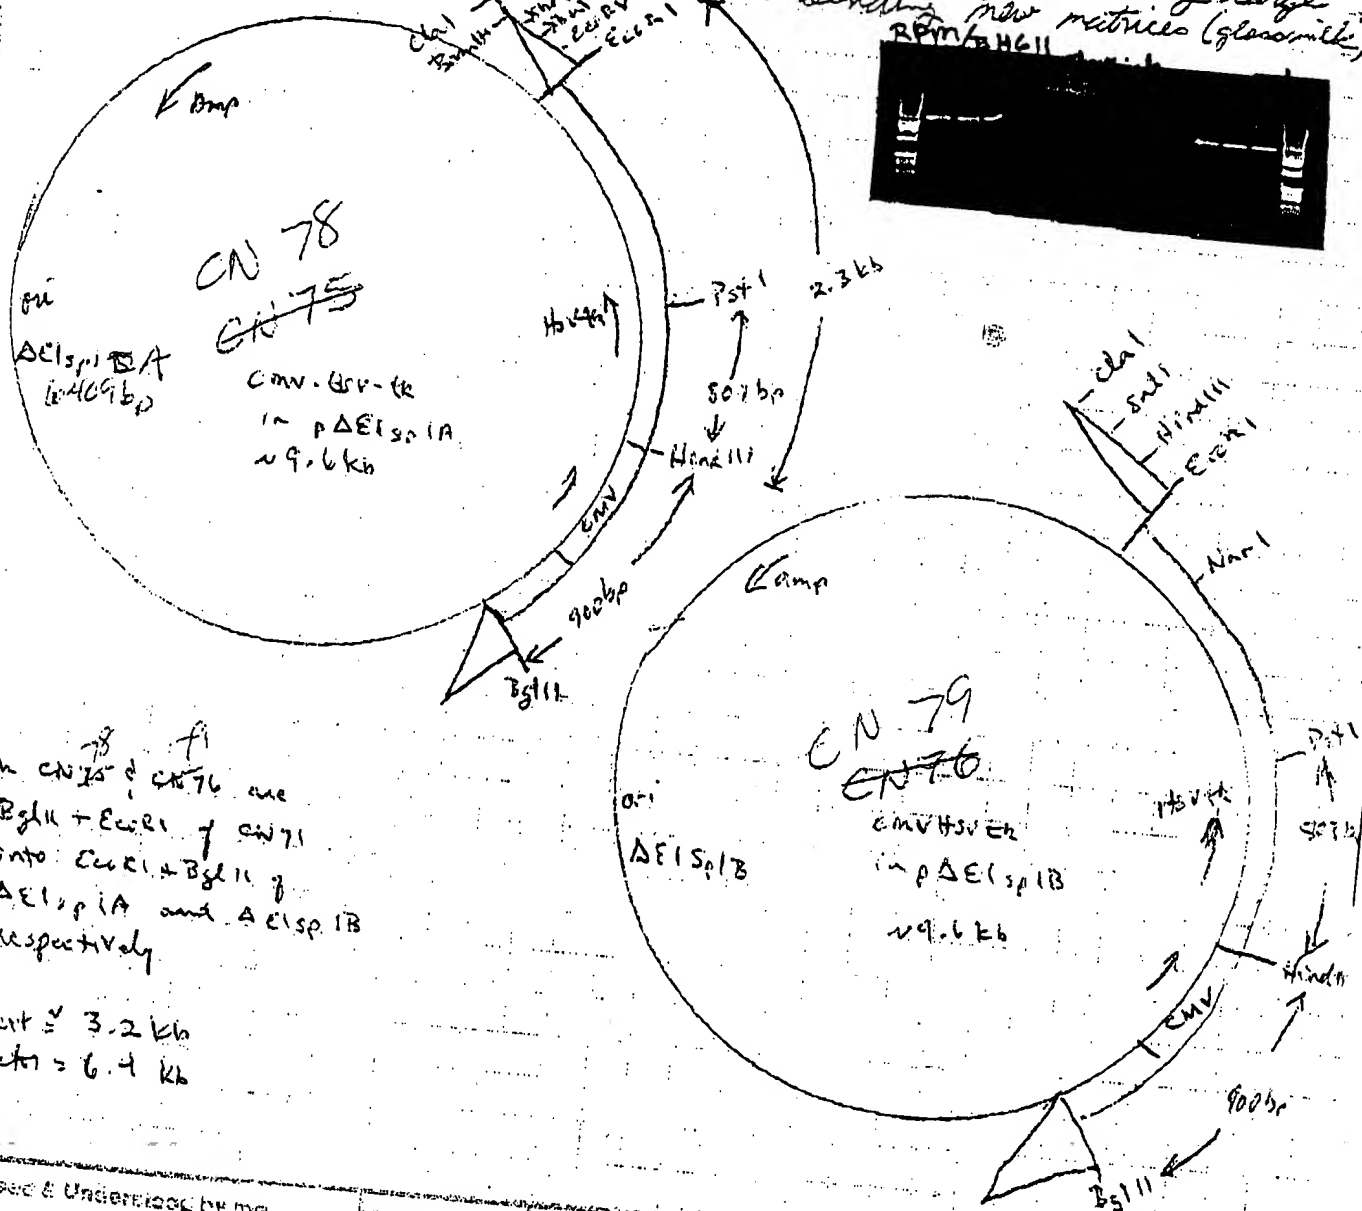 new matrices (glassmilk)
RPM/BHGII
Cla1
BamHI
Xba1
EcoRV
EcoR1
Amp
CN 78
CN 75
ori
ΔE1sp1A
6409bp
CMV-HSV-tk
in pΔE1sp1A
~9.6kb
HSVtk
Pst1
2.3kb
803bp
HindIII
CMV
900bp
BglII
Cla1
Sal1
HindIII
EcoR1
Nar1
amp
CN 79
CN 76
ori
ΔE1Sp1B
CMVHSVtk
in pΔE1sp1B
~9.6kb
HSVtk
Pst1
HindIII
CMV
900bp
BglII
78
CN75 & CN76 are
BglII + EcoR1 of CN71
into EcoR1 + BglII of
ΔE1sp1A and ΔE1sp1B
respectively
3.2 kb
= 6.4 kb
& Understood by me